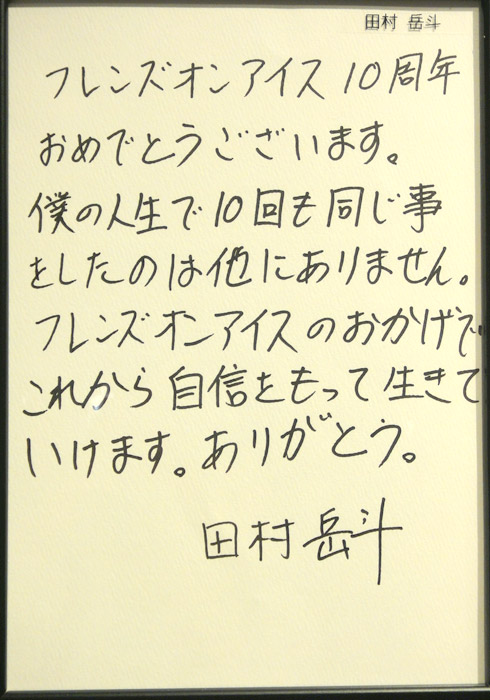 田村 岳斗
フレンズオンアイス 10周年
おめでとうございます。
僕の人生で10回も同じ事
をしたのは他にありません。
フレンズオンアイスのおかげで
これから自信をもって生きて
いけます。ありがとう。
田村岳斗